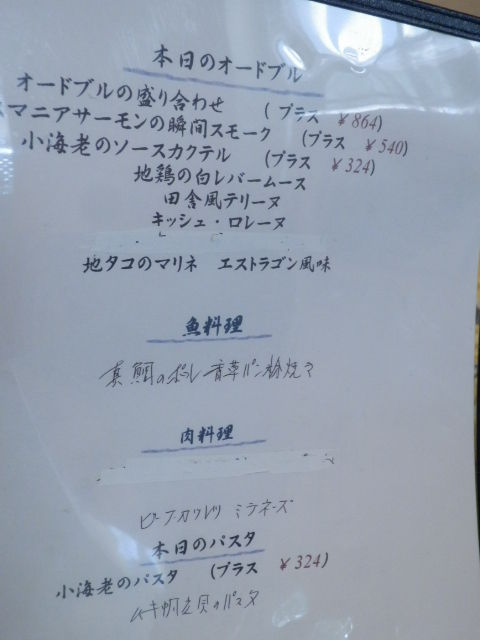 本日のオードブル
オードブルの盛り合わせ (プラス ¥864)
スマニアサーモンの瞬間スモーク (プラス ¥540)
小海老のソースカクテル (プラス ¥324)
地鶏の白レバームース
田舎風テリーヌ
キッシュ・ロレーヌ
地タコのマリネ エストラゴン風味
魚料理
真鯛のポワレ 香草パン粉焼き
肉料理
ビーフカツレツ ミラネーズ
本日のパスタ
小海老のパスタ (プラス ¥324)
帆立貝のパスタ